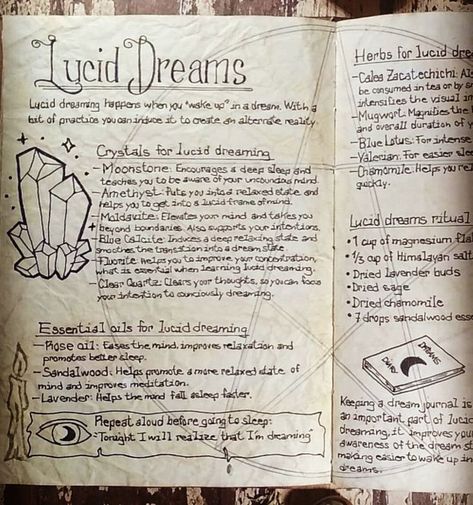 Lucid Dreams
Lucid dreaming happens when you "wake up" in a dream. With a
bit of practice you can induce it to create an alternate reality.
Crystals for lucid dreaming
- Moonstone: Encourages a deep sleep and
teaches you to be aware of your uncounious mind.
- Amethyst: Puts you into a relaxed state and
helps you to get into a lucid frame of mind.
- Moldavite: Elevates your mind and takes you
beyond boundaries. Also supports your intentions.
- Blue Calcite: Induces a deep relaxing state and
smoothes the transition into a dream state.
- Fluorite: Helps you to improve your concentration,
what is essential when learning lucid dreaming.
- Clear Quartz: Clears your thoughts, so you can focus
your intention to counciously dreaming.
Essential oils for lucid dreaming
- Rose oil: Eases the mind, improves relaxation and
promotes better sleep.
- Sandalwood: Helps promote a more relaxed state of
mind and improves meditation.
- Lavender: Helps the mind fall asleep faster.
Repeat aloud before going to sleep:
"Tonight I will realize that I'm dreaming"
Herbs for lucid
- Calea Zacatechichi:
be consumed in tea or by
intensifies the visual
- Mugwort: Magnifies the
and overall duration of
- Blue Lotus: For intense
- Valerian: For easier
- Chamomile: Helps you
quickly.
Lucid dreams ritual
• 1 cup of magnesium
• 1/3 cup of Himalayan salt
• Dried lavender buds
• Dried sage
• Dried chamomile
• 7 drops sandalwood
DREAMS
DIARY
Keeping a dream journal is
an important part of lucid
dreaming, it improves your
awareness of the dream
making easier to wake up in
dreams.